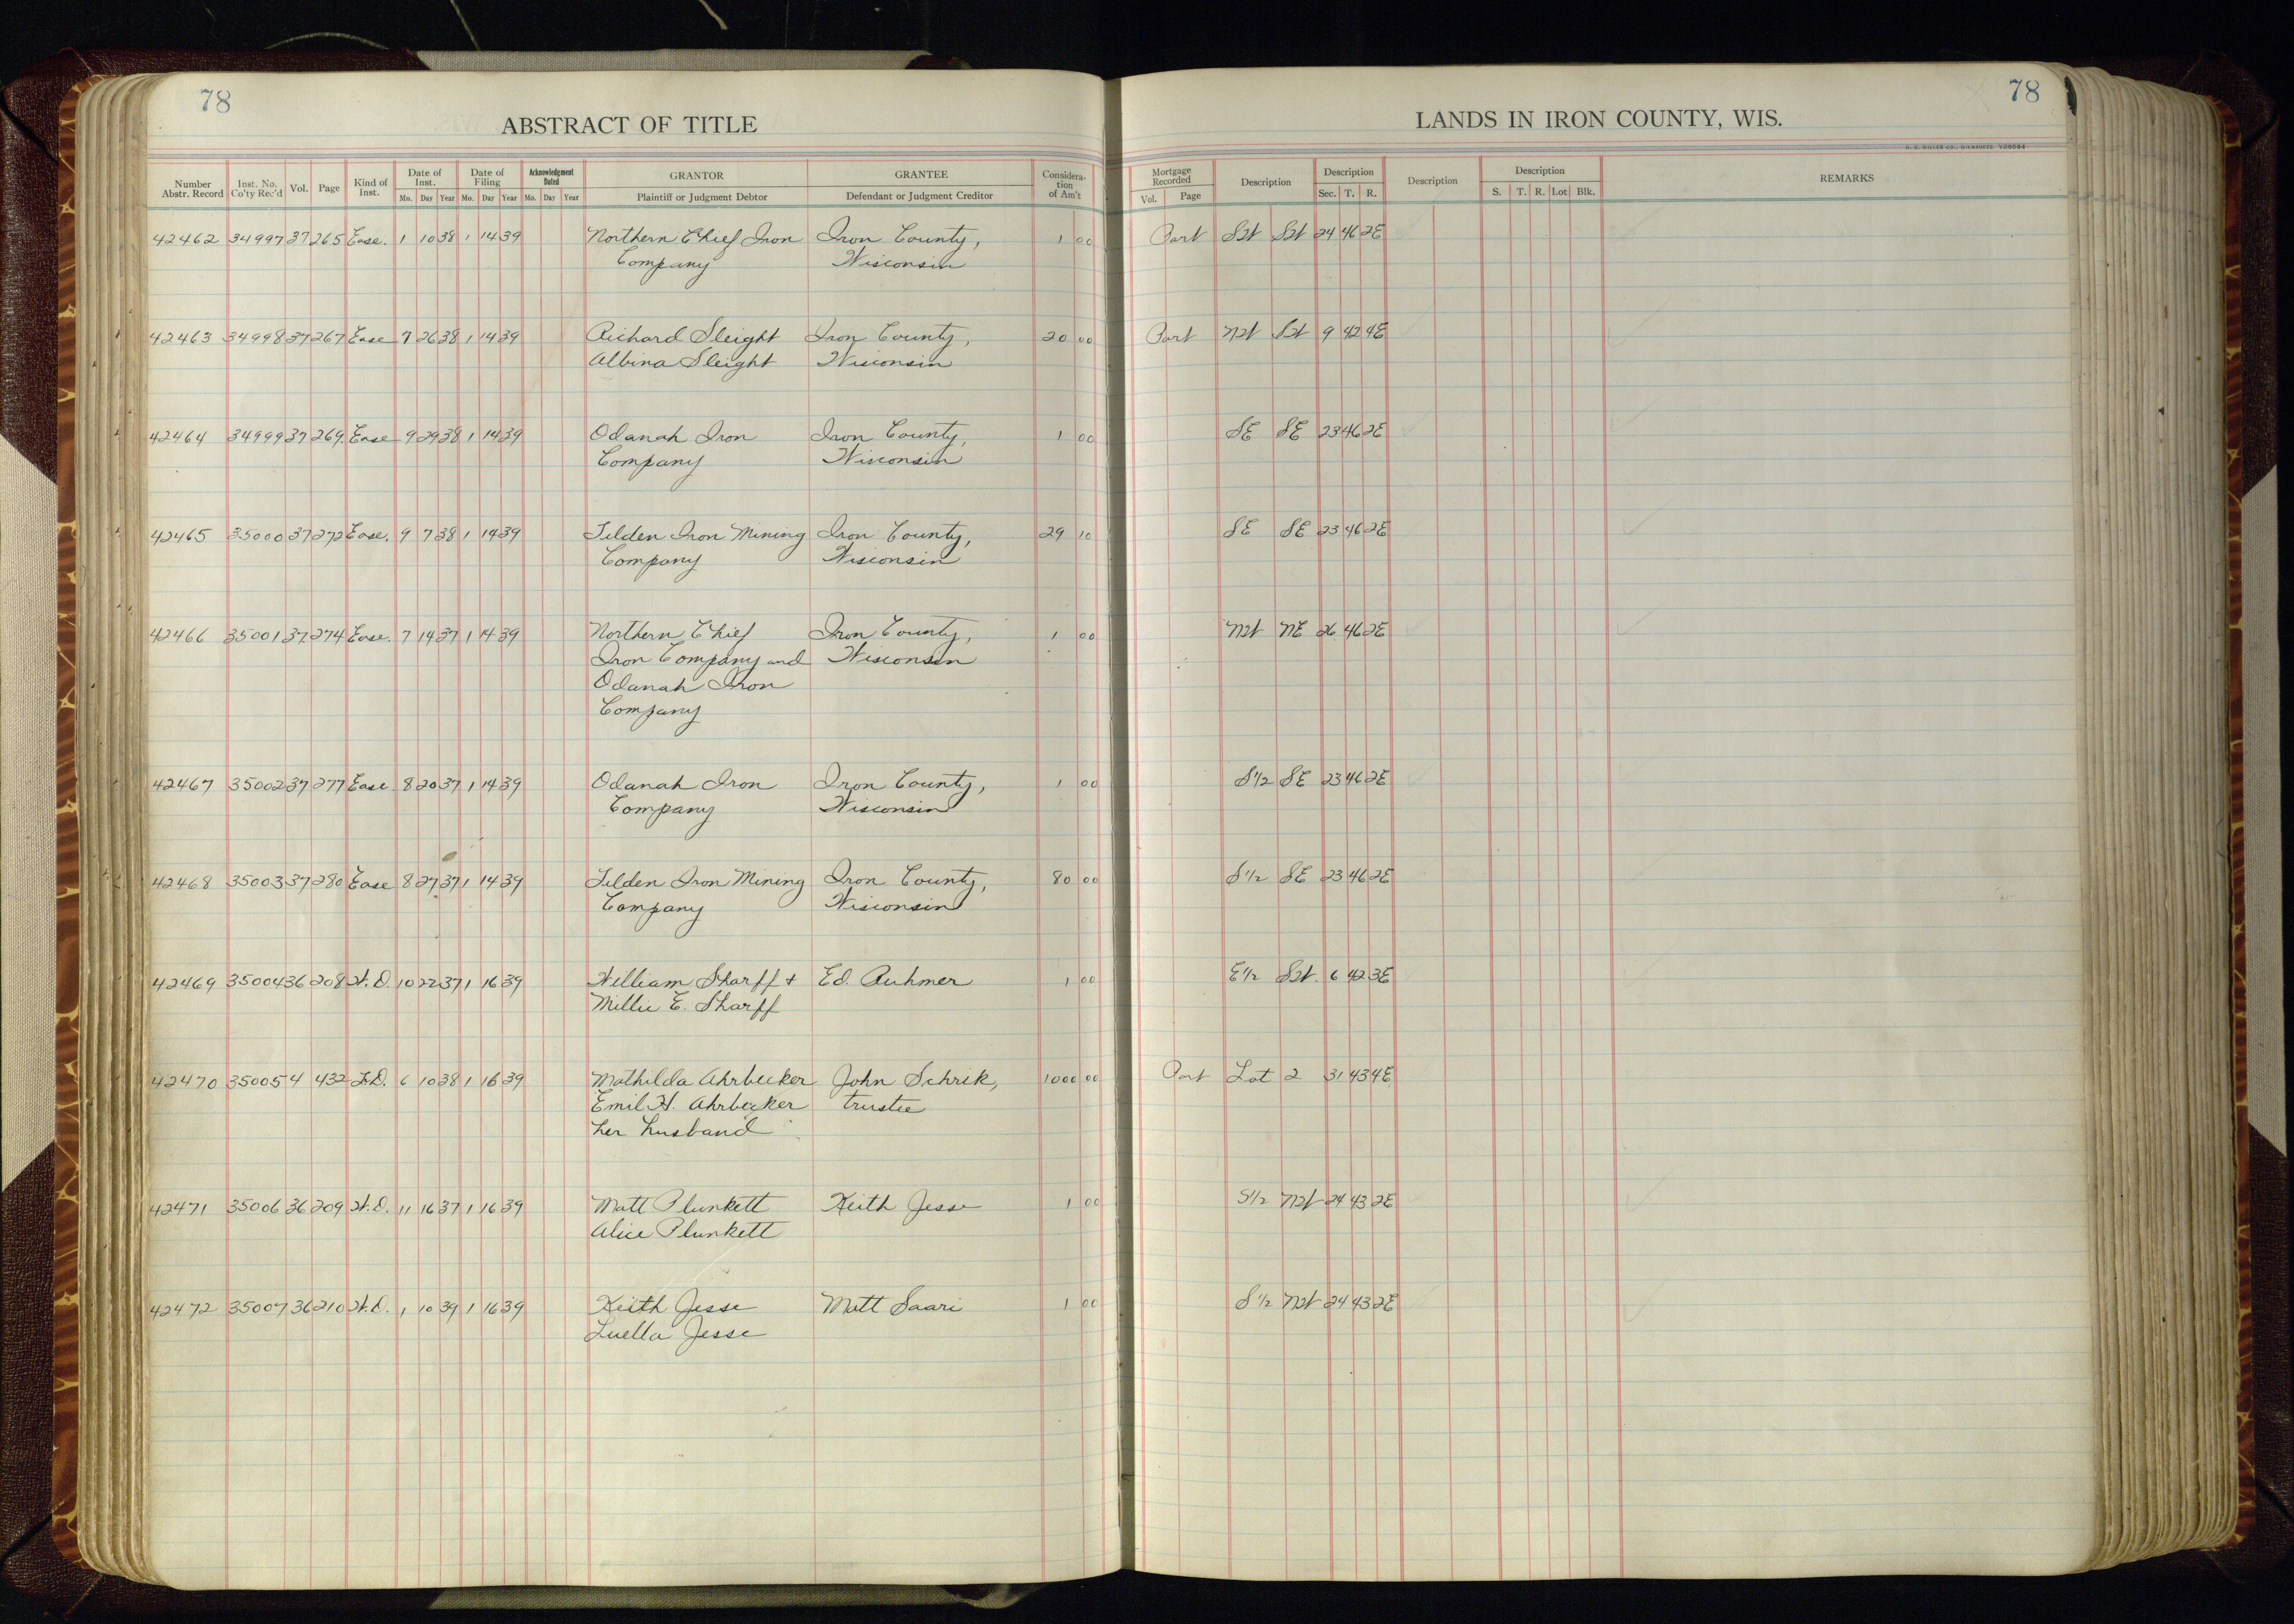 78
78
ABSTRACT OF TITLE
LANDS IN IRON COUNTY, WIS.
Number Abstr. Record Inst. No. Co'ty Rec'd Vol. Page Kind of Inst. Date of Inst. Mo. Day Year Date of Filing Mo. Day Year Acknowledgment Dated Mo. Day Year GRANTOR Plaintiff or Judgment Debtor GRANTEE Defendant or Judgment Creditor Considera-tion of Am't Mortgage Recorded Vol. Page Description Description Sec. T. R. Description Description S. T. R. Lot Blk. REMARKS
42462 34997 37 265 Ease. 1 10 38 1 14 39 Northern Chief Iron Iron County, 1 00 Part SW SW 24 46 2E
Company Wisconsin
42463 34998 37 267 Ease 7 26 38 1 14 39 Richard Sleight Iron County, 20 00 Part NW SW 9 42 4E
Albina Sleight Wisconsin
42464 34999 37 269 Ease 9 29 38 1 14 39 Odanah Iron Iron County, 1 00 SE SE 23 46 2E
Company Wisconsin
42465 35000 37 272 Ease. 9 7 38 1 14 39 Tilden Iron Mining Iron County, 29 10 SE SE 23 46 2E
Company Wisconsin
42466 35001 37 274 Ease. 7 14 37 1 14 39 Northern Chief Iron County, 1 00 NW NE 26 46 2E
Iron Company and Wisconsin
Odanah Iron
Company
42467 35002 37 277 Ease 8 20 37 1 14 39 Odanah Iron Iron County, 1 00 S1/2 SE 23 46 2E
Company Wisconsin
42468 35003 37 280 Ease 8 27 37 1 14 39 Tilden Iron Mining Iron County, 80 00 S1/2 SE 23 46 2E
Company Wisconsin
42469 35004 36 208 W.D. 10 22 37 1 16 39 William Sharff + Ed. Ruhmer 1 00 E1/2 SW. 6 42 3E
Millie E. Sharff
42470 35005 4 432 T.D. 6 10 38 1 16 39 Mathilda Ahrbecker John Schrik, 1000 00 Part Lot 2 31 43 4E
Emil H. Ahrbecker trustee
her husband
42471 35006 36 209 W.D. 11 16 37 1 16 39 Matt Plunkett Keith Jesse 1 00 S1/2 NW 24 43 2E
Alice Plunkett
42472 35007 36 210 W.D. 1 10 39 1 16 39 Keith Jesse Matt Saari 1 00 S1/2 NW 24 43 2E
Luella Jesse